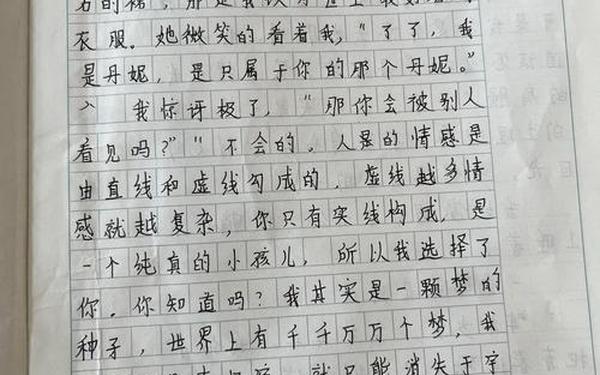 的裙，那是我认为世上最好看的
衣服。她微笑的看着我，"了了，我
是丹妮，是只属于你的那个丹妮。"
我惊讶极了，"那你会被别人
看见吗？""不会的，人类的情感是
由直线和虚线勾成的，虚线越多情
感就越复杂，你只有实线构成，是
一个纯真的小孩儿，所以我选择了
你。你知道吗？我其实是一颗梦的
种子，世界上有千千万万个梦，我
就只能消失于宇